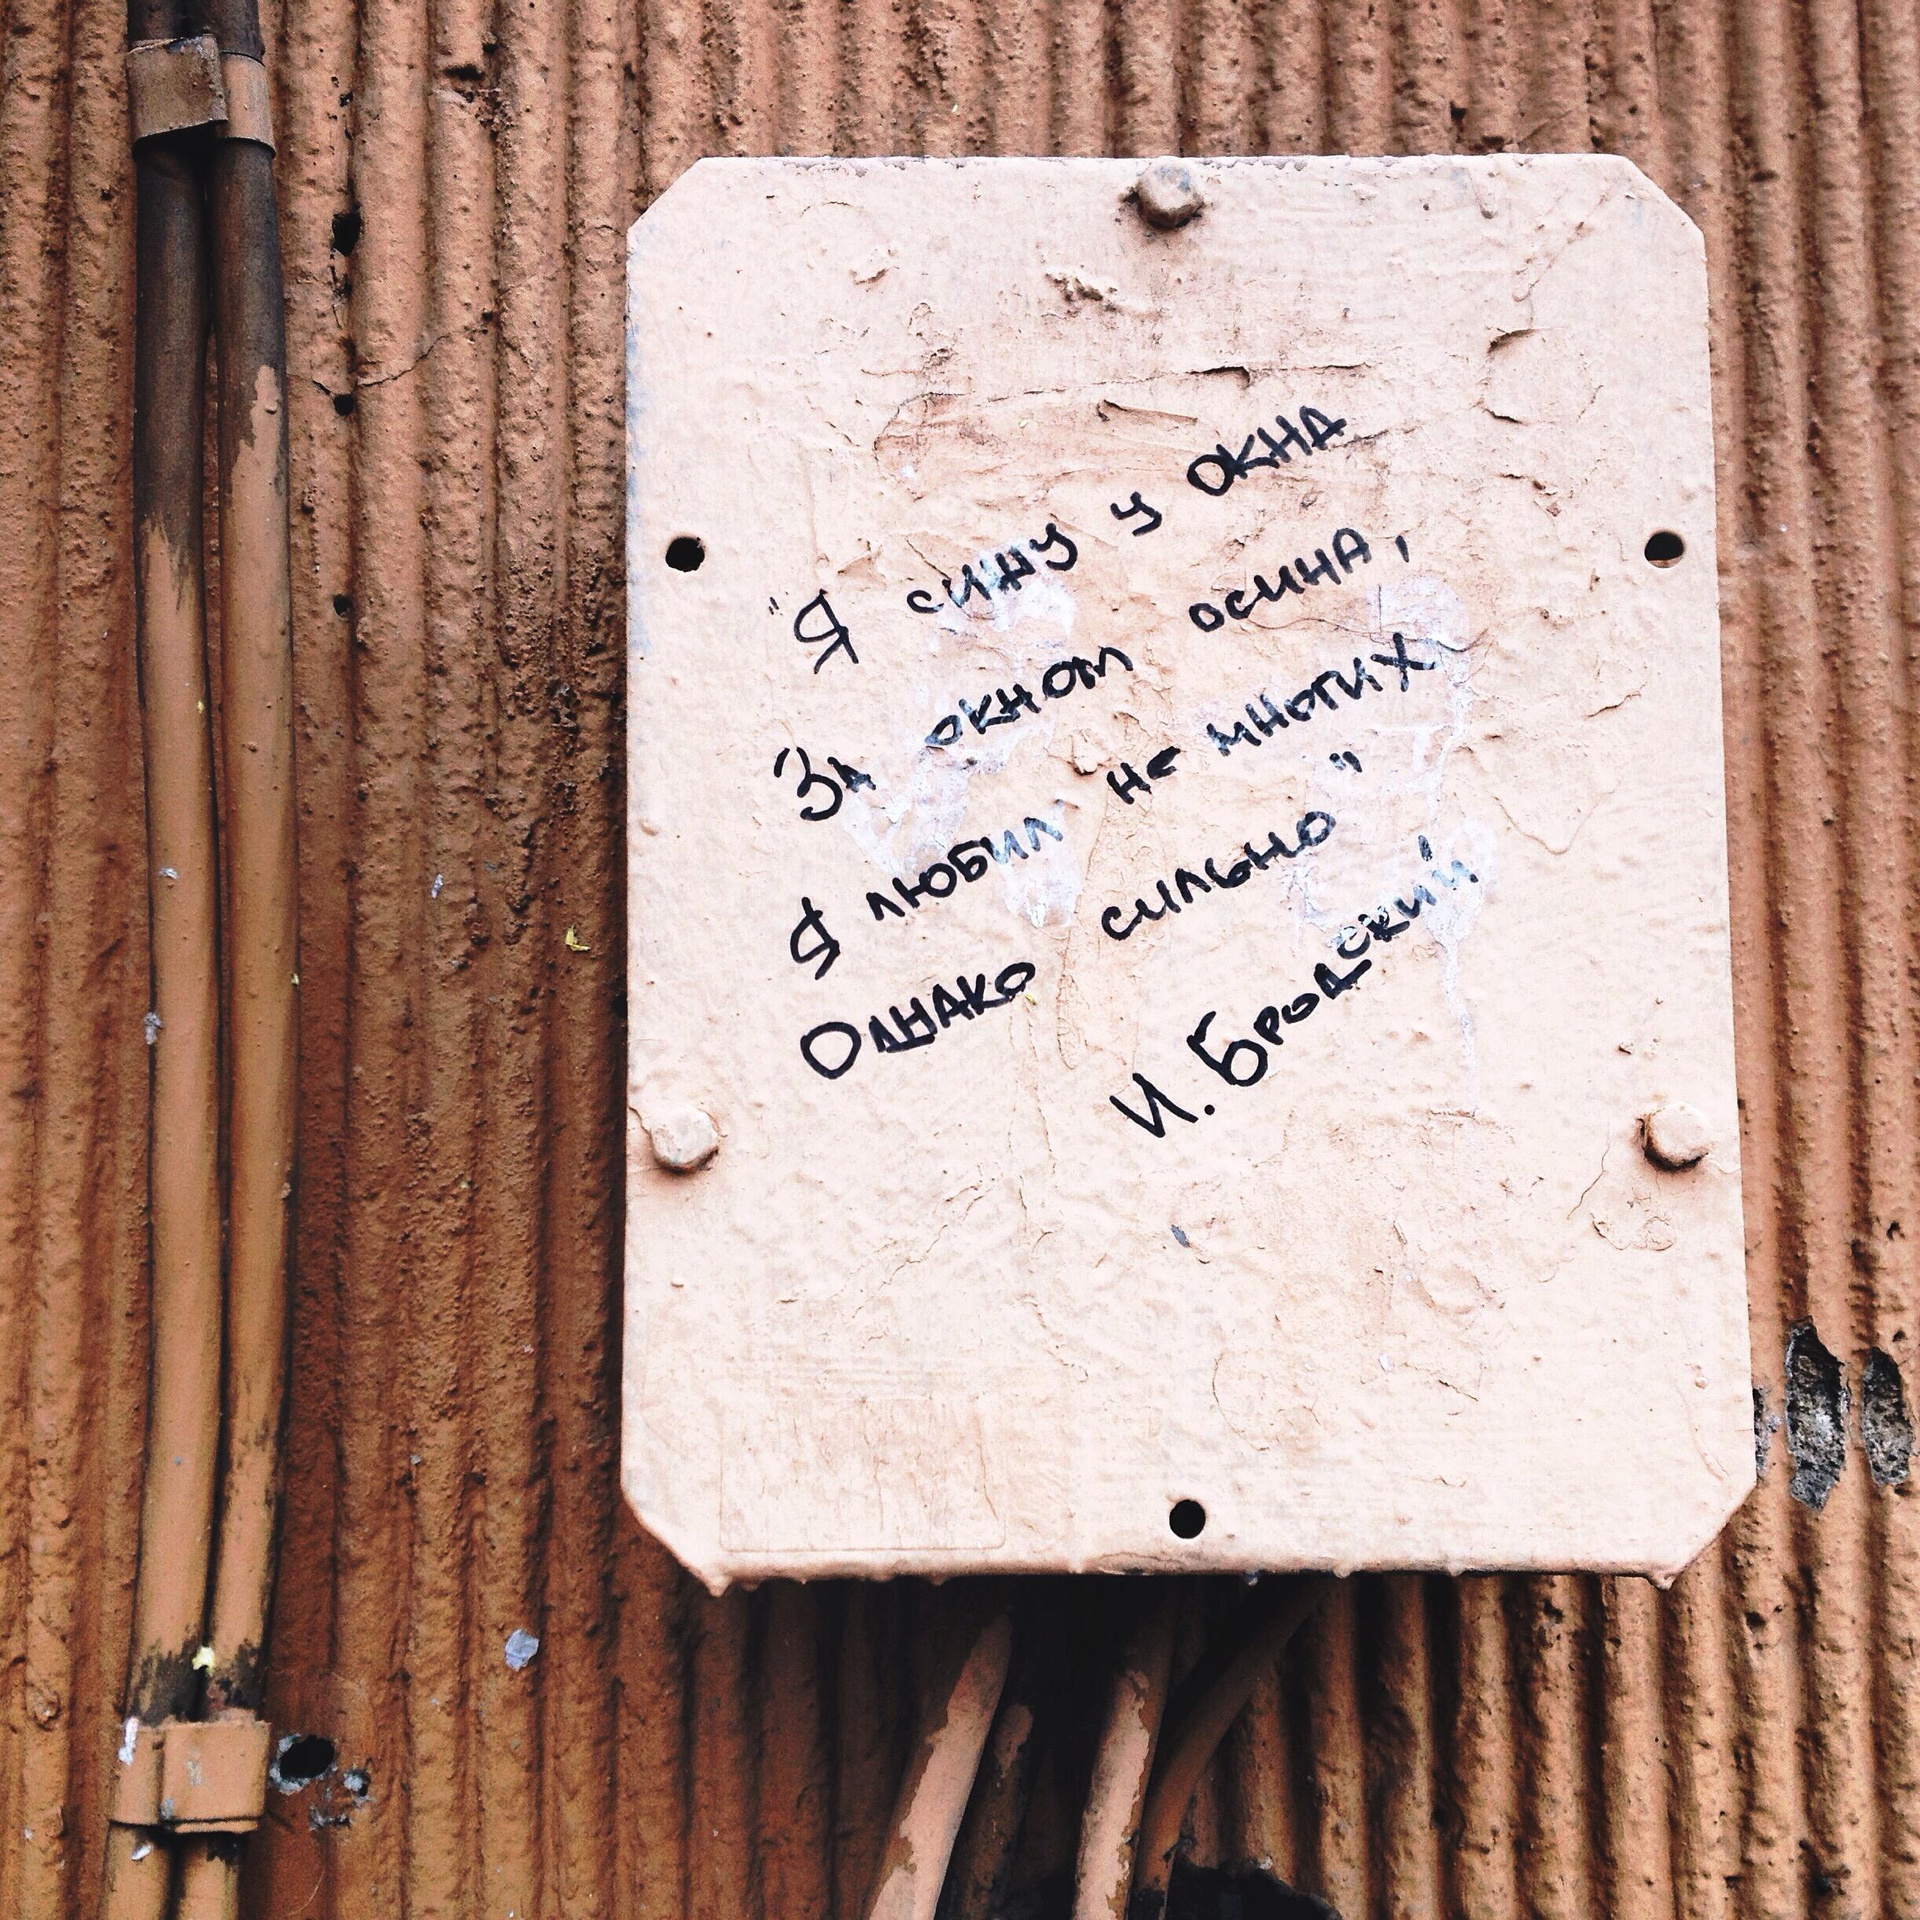 "Я сижу у окна
За окном осина,
Я любил не многих
Однако сильно"
И. Бродский